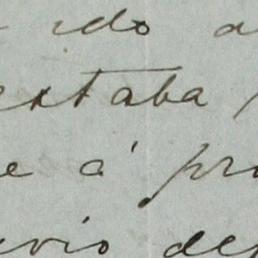 ido a
estaba
e á pro
uvio dep